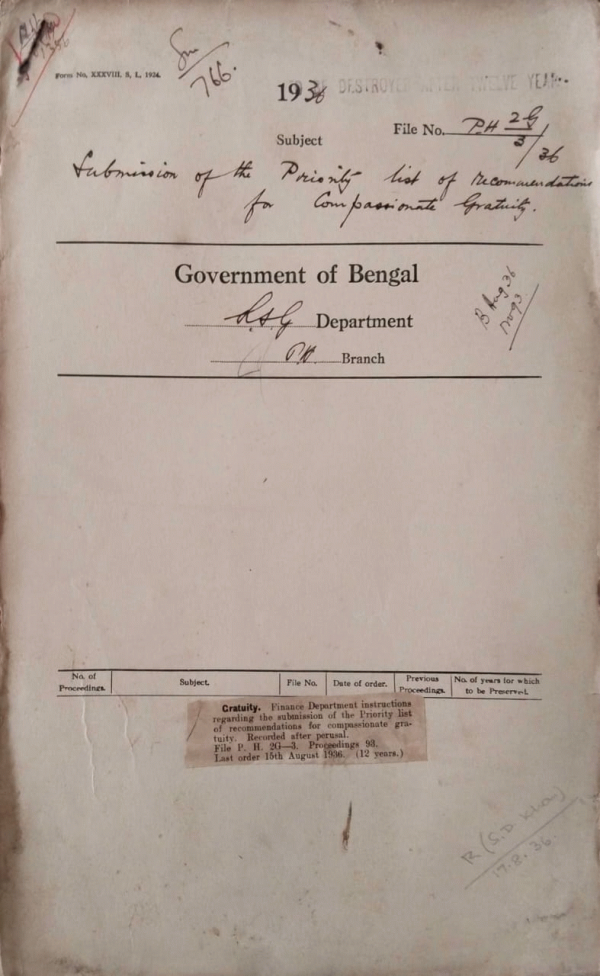 Form No. XXXVIII. S, L, 1924.
766.
1936
DESTROYED AFTER TWELVE YEARS
Subject
File No. P.H 2G/3/36
Submission of the Priority list of recommendations
for Compassionate Gratuity.
Government of Bengal
L.S.G Department
P.H. Branch
B Aug 36
No 93
No. of Proceedings.
Subject.
File No.
Date of order.
Previous Proceedings.
No. of years for which to be Preserved.
Gratuity. Finance Department instructions
regarding the submission of the Priority list
of recommendations for compassionate gra-
tuity. Recorded after perusal.
File P. H. 2G—3. Proceedings 93.
Last order 15th August 1936. (12 years.)
17.8.36.